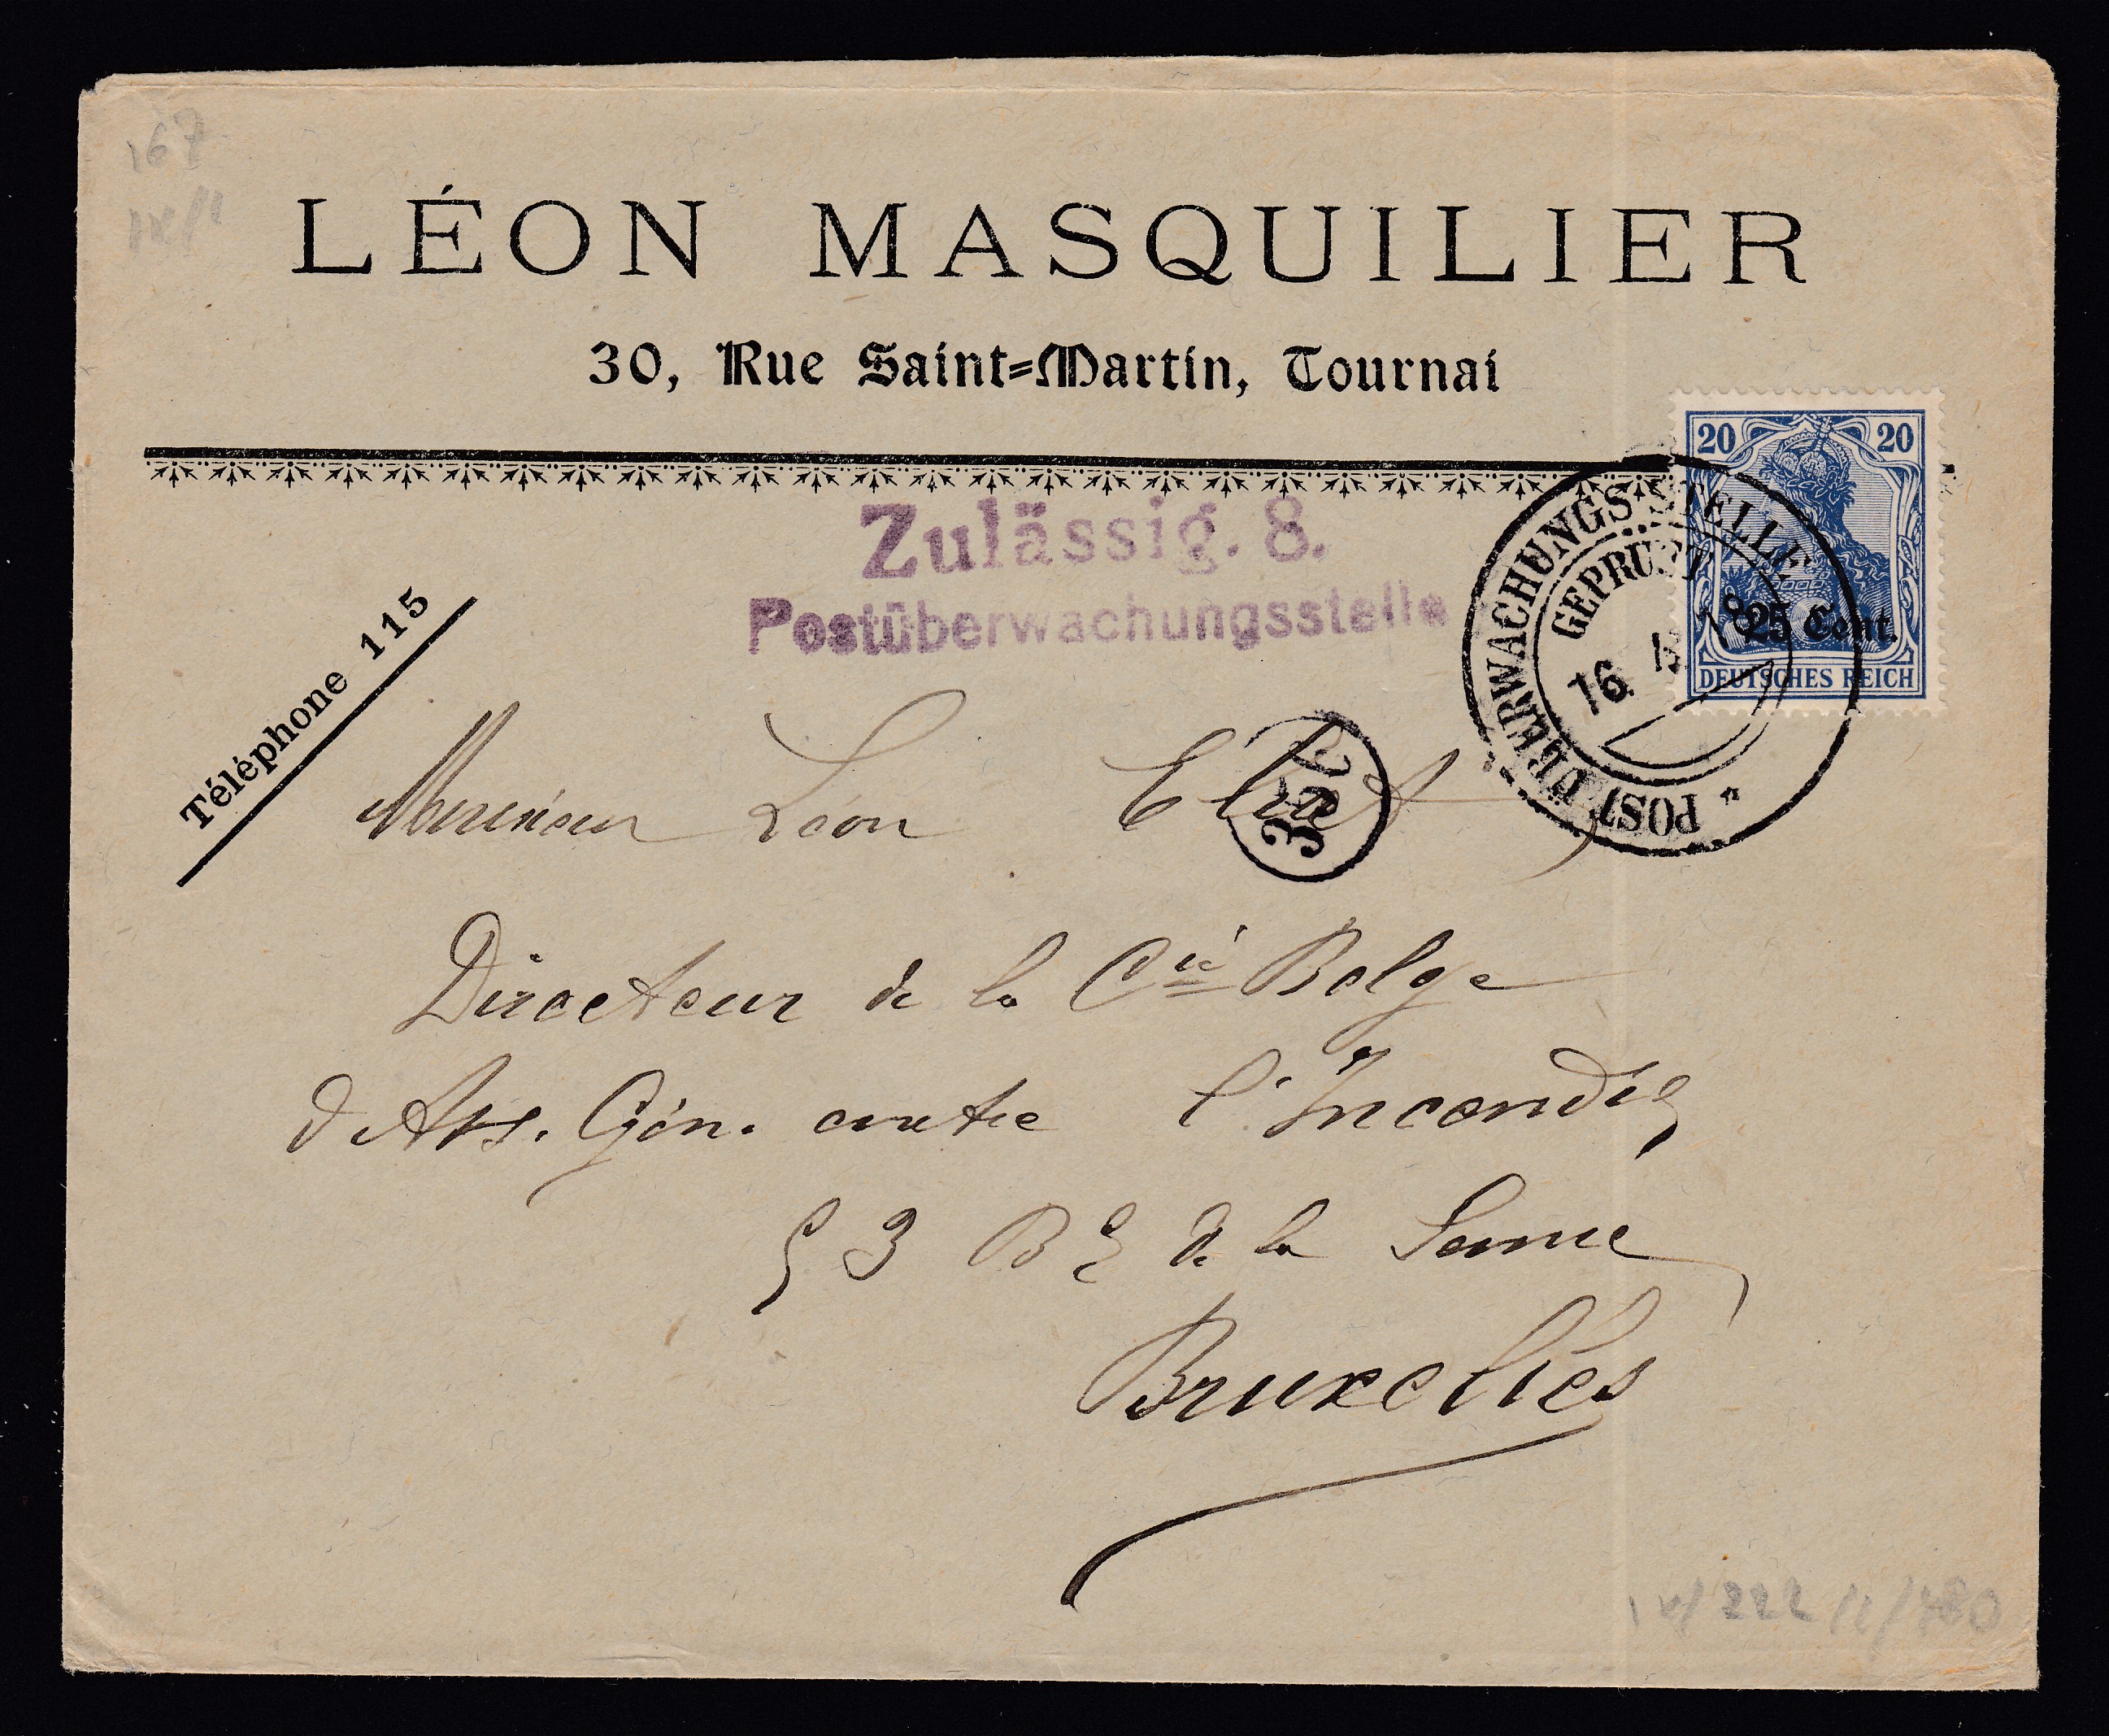 167
LÉON MASQUILIER
30, Rue Saint-Martin, Tournai
20 20
25 Cent.
DEUTSCHES REICH
POSTÜBERWACHUNGSSTELLE
GEPRÜFT
16 18
Zulässig. 8.
Postüberwachungsstelle
Téléphone 115
Monsieur Léon
Directeur de la Cie Belge
d'Ass. Gén. contre l'Incendie
53 Bd de la Senne
Bruxelles